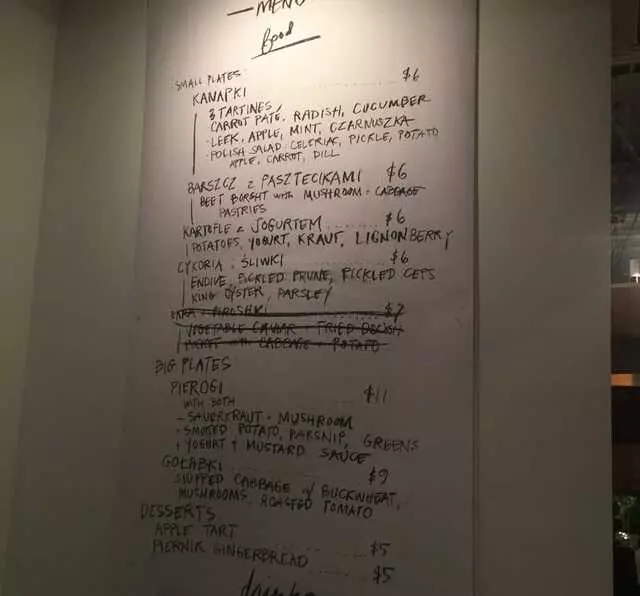 MENU
food
SMALL PLATES
KANAPKI $6
3 TARTINES
CARROT PATÉ, RADISH, CUCUMBER
· LEEK, APPLE, MINT, CZARNUSZKA
· POLISH SALAD CELERIAC, PICKLE, POTATO
APPLE, CARROT, DILL
BARSZCZ z PASZTECIKAMI $6
BEET BORSHT with MUSHROOM + CABBAGE
PASTRIES
KARTOFLE z JOGURTEM $6
POTATOES, YOGURT, KRAUT, LIGNONBERRY
CYKORIA i ŚLIWKI $6
ENDIVE, PICKLED PRUNE, PICKLED CEPS
KING OYSTER, PARSLEY
PIROSHKI $7
VEGETABLE CAVIAR + FRIED
with CABBAGE + POTATO
BIG PLATES
PIEROGI $11
WITH BOTH
- SAUERKRAUT + MUSHROOM
- SMOKED POTATO, PARSNIP, GREENS
+ YOGURT + MUSTARD SAUCE
GOŁABKI $9
STUFFED CABBAGE w/ BUCKWHEAT,
MUSHROOMS, ROASTED TOMATO
DESSERTS
APPLE TART $5
PIERNIK GINGERBREAD $5
drinks